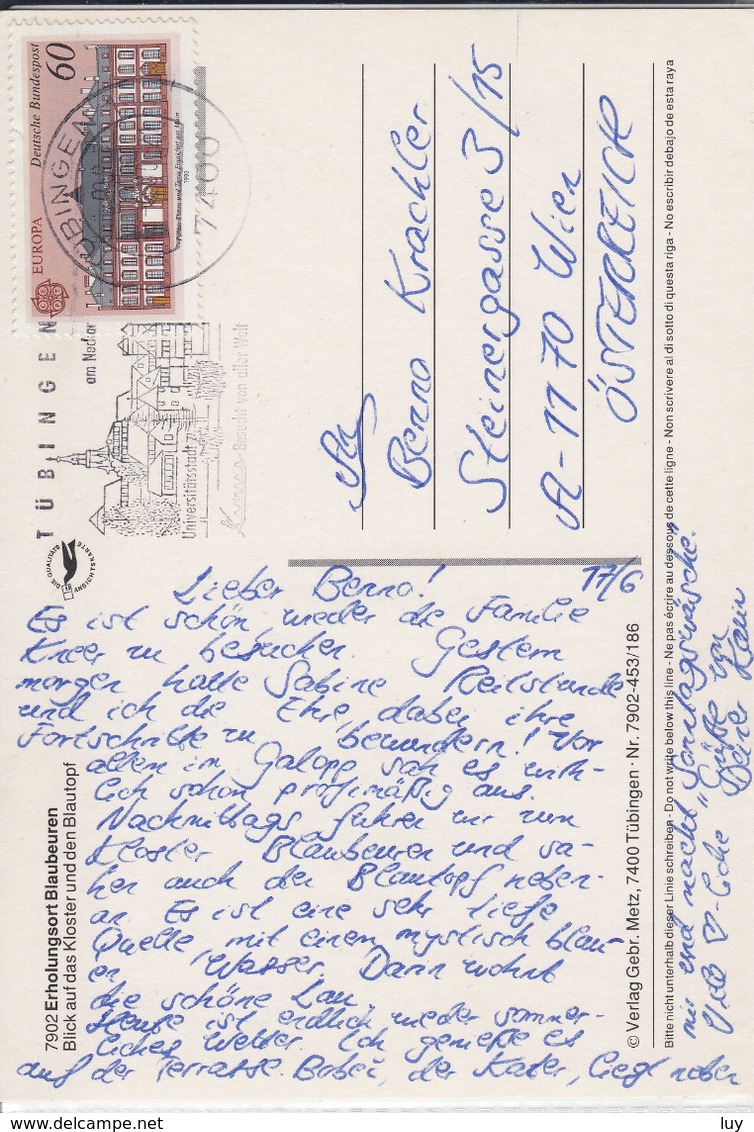 Deutsche Bundespost
60
EUROPA
Palais Thurn und Taxis Frankfurt am Main
1990
TÜBINGEN
7400
TÜBINGEN
am Neckar
Universitätsstadt
Besucht von aller Welt
DIE QUALITÄTS ANSICHTSKARTE
An
Benno Krachler
Steinergasse 3/15
A-1170 Wien
ÖSTERREICH
17/6
Lieber Benno!
Es ist schön wieder die Familie
Kneer zu besuchen. Gestern
morgen hatte Sabine Reitstunde
und ich die Ehre dabei ihre
Fortschritte zu bewundern! Vor
allem im Galopp sah es wirk-
lich schon profimäßig aus.
Nachmittags fuhren wir zum
Kloster Blaubeuren und sa-
hen auch den Blautopf neben-
an. Es ist eine sehr tiefe
Quelle mit einem mystisch blau-
en Wasser. Darin wohnt
die schöne Lau.
Heute ist endlich wieder sommer-
liches Wetter. Ich genieße es
auf der Terrasse. Bobei, der Kater, liegt neben
mir und macht "Sonntagswäsche."
Viele ♡-liche Grüße von
Deiner Karin
7902 Erholungsort Blaubeuren
Blick auf das Kloster und den Blautopf
© Verlag Gebr. Metz, 7400 Tübingen · Nr. 7902-453/186
Bitte nicht unterhalb dieser Linie schreiben - Do not write below this line - Ne pas écrire au dessous de cette ligne - Non scrivere al di sotto di questa riga - No escribir debajo de esta raya
luy